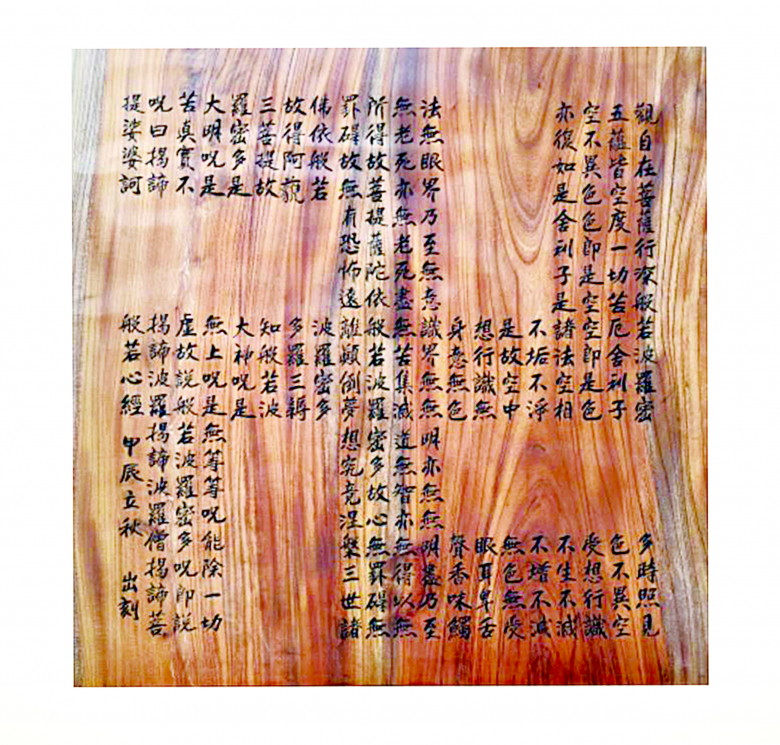 觀自在菩薩行深般若波羅密 多時照見
五蘊皆空度一切苦厄舍利子 色不異空
空不異色色即是空空即是色 受想行識
亦復如是舍利子是諸法空相 不生不滅
不垢不淨 不增不減
是故空中 無色無受
想行識無 眼耳鼻舌
身意無色 聲香味觸
法無眼界乃至無意識界無無明亦無無明盡乃至
無老死亦無老死盡無苦集滅道無智亦無得以無
所得故菩提薩陀依般若波羅密多故心無罣礙無
罣礙故無有恐怖遠離顛倒夢想究竟涅槃三世諸
佛依般若 波羅密多
故得阿藐 多羅三耨
三菩提故 知般若波
羅密多是 大神呪是
大明呪是 無上呪是無等等呪能除一切
苦真實不 虛故說般若波羅密多呪即說
呪曰揭諦 揭諦波羅揭諦波羅僧揭諦菩
提娑婆訶 般若心經 甲辰立秋 出刻